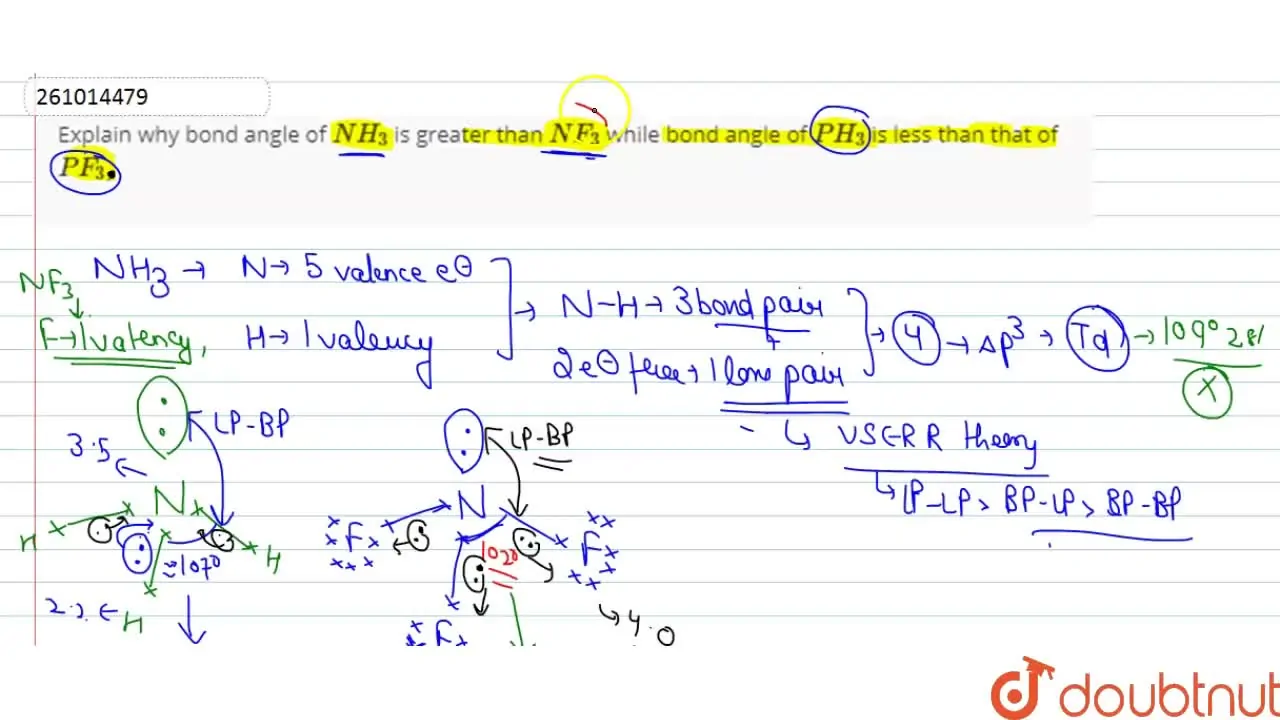 261014479
Explain why bond angle of NH3 is greater than NF3 while bond angle of PH3 is less than that of
PF3.
NH3 → N → 5 valence e⊖
NF3
F → 1 valency, H → 1 valency
N-H → 3 bond pair
+
1 lone pair
→ 4 → sp³ → Td → 109° 28'
X
VSEPR theory
LP-LP > BP-LP > BP-BP
LP-BP
LP-BP
3.5
N
N
H
H
H
≈107°
2.2
F
F
F
102°
4.0
doubtnut